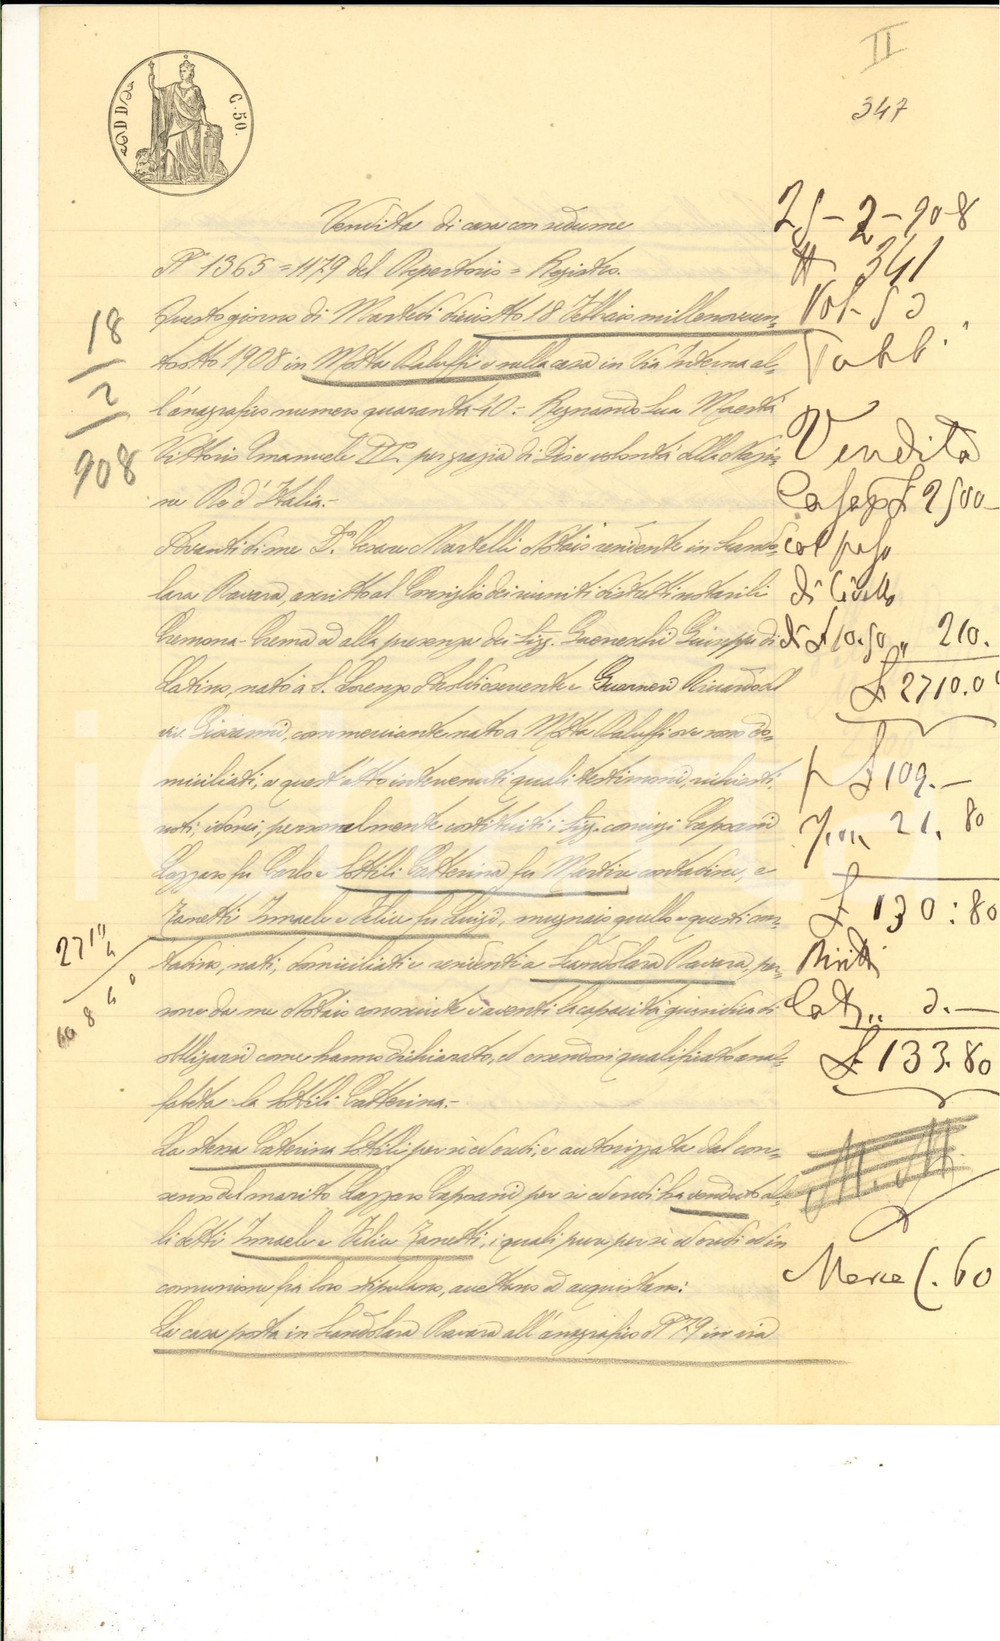 II
347
C. 50.
Vendita di casa con sedume
N° 1365 = 1179 del Repertorio = Registro.
Questo giorno di Martedì diciotto 18 Febbraio millenovecen-
totto 1908 in Motta Baluffi e nella casa in Via Interna al-
l'anagrafico numero quaranta 40 = Regnando Sua Maestà
Vittorio Emanuele III° per grazia di Dio e volontà della Nazio-
ne Re d'Italia.-
Avanti di me D.r Cesare Martelli Notaio residente in Scando-
lara Ravara, ascritto al Consiglio dei riuniti distretti notarili
Cremona-Crema ed alla presenza dei Sigg. Guereschi Giuseppe di
nato a S. Lorenzo e Guarneri
Giovanni, commerciante nato a Motta Baluffi ove sono do-
miciliati, a quest'atto intervenuti quali testimoni, richiesti,
noti, idonei, personalmente costituiti i Sigg. coniugi Capsani
Lazzaro fu Carlo e Sottili Catterina fu Martino contadini, e
Zanetti Ismaele e Felice fu Luigi, mugnaio quello e questi con-
tadino, nati, domiciliati e residenti a Scandolara Ravara, per-
sone da me Notaio conosciute e aventi la capacità giuridica di
obbligarsi come hanno dichiarato, ed essendosi qualificata anal-
fabeta la Sottili Catterina.-
La stessa Catterina Sottili per sè ed eredi, e autorizzata dal con-
senso del marito Lazzaro Capsani per sè ed eredi ha venduto al-
li detti Ismaele e Felice Zanetti, i quali pure per sè ed eredi ed in
comunione fra loro stipulano, accettano ed acquistano:
La casa posta in Scandolara Ravara all'anagrafico N° 79 in via
18
2
908
25-2-908
# 341
Vol. 53
Pubb.
Vendita
Casa p £ 2500-
col peso
di livello
di £ 10.50 „ 210.
£ 2710.00
p £ 109.-
21.80
£ 130:80
Diritti
Cat. „ 3.-
£ 133.80
C. 60